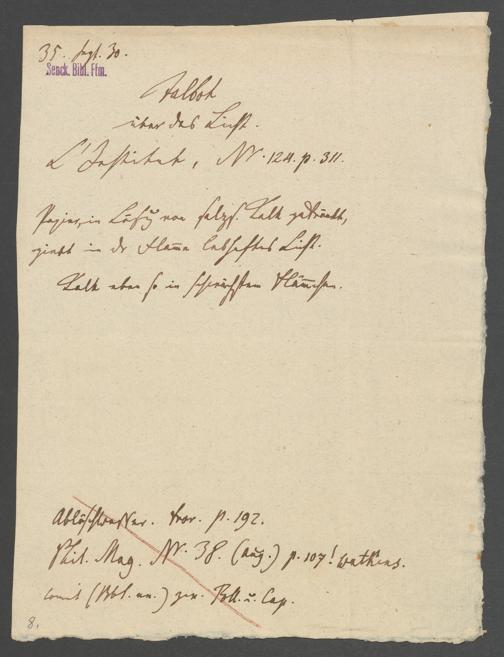 35. Sept. 30.
Senck. Bibl. Ffm.
Talbot
über das Licht.
L'Institut, Nr. 124. p. 311.
Papier, in von salzs. Kalk getränkt,
giebt in der Flamme lebhaftes Licht.
Kalk eben so in schwächstem Flämmchen.
Ablöschwasser. Fror. p. 192.
Phil. Mag. Nr. 38. (Aug.) p. 107! Watkins.
(Bibl. un.) u. Cap.
8.